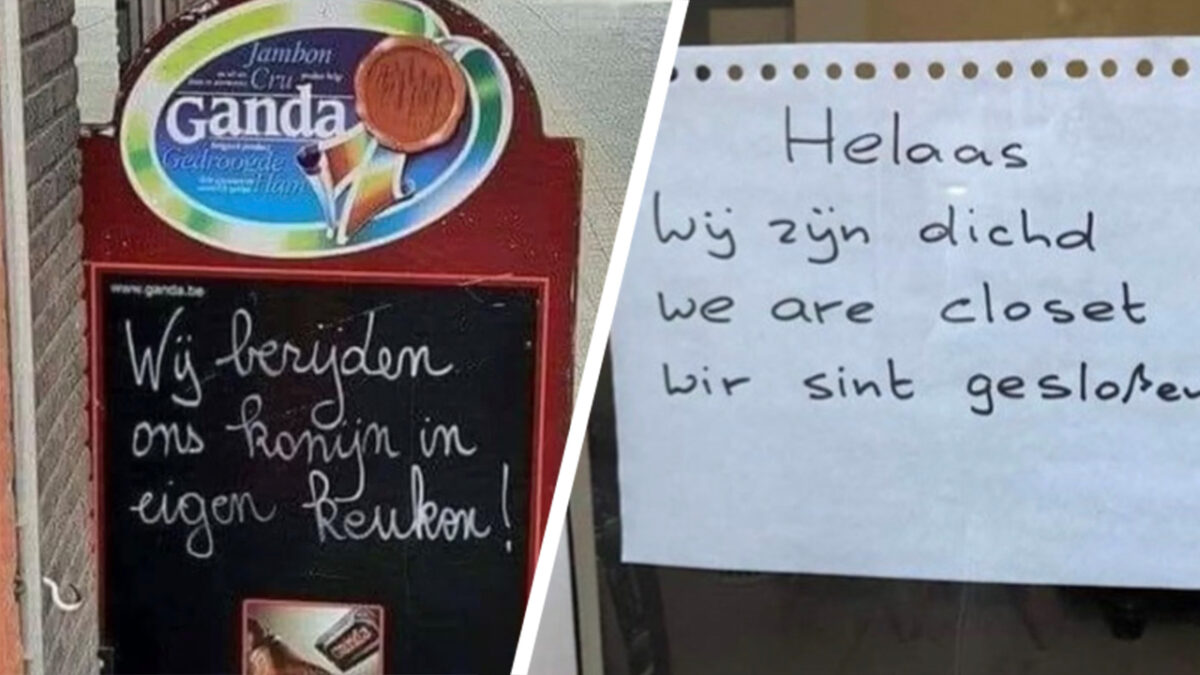 Jambon
Cru
Ganda
Gedroogde
Ham
www.ganda.be
Wij berijden
ons konijn in
eigen keukon!
Helaas
Wij zijn dichd
we are closet
wir sint gesloßen